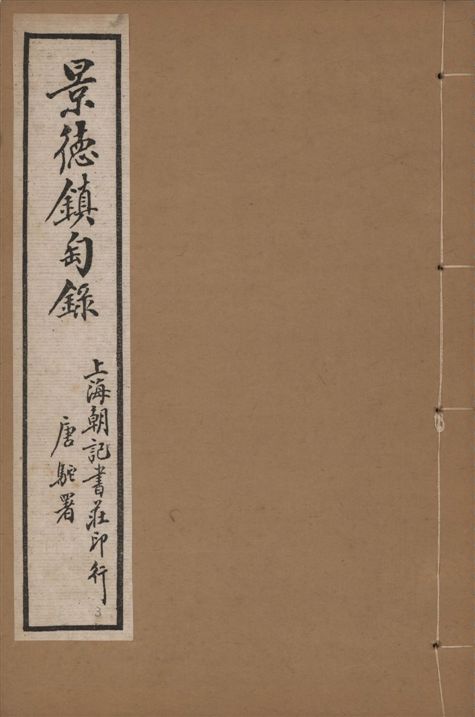 景德鎮匋錄
上海朝記書莊印行
唐駝署
3